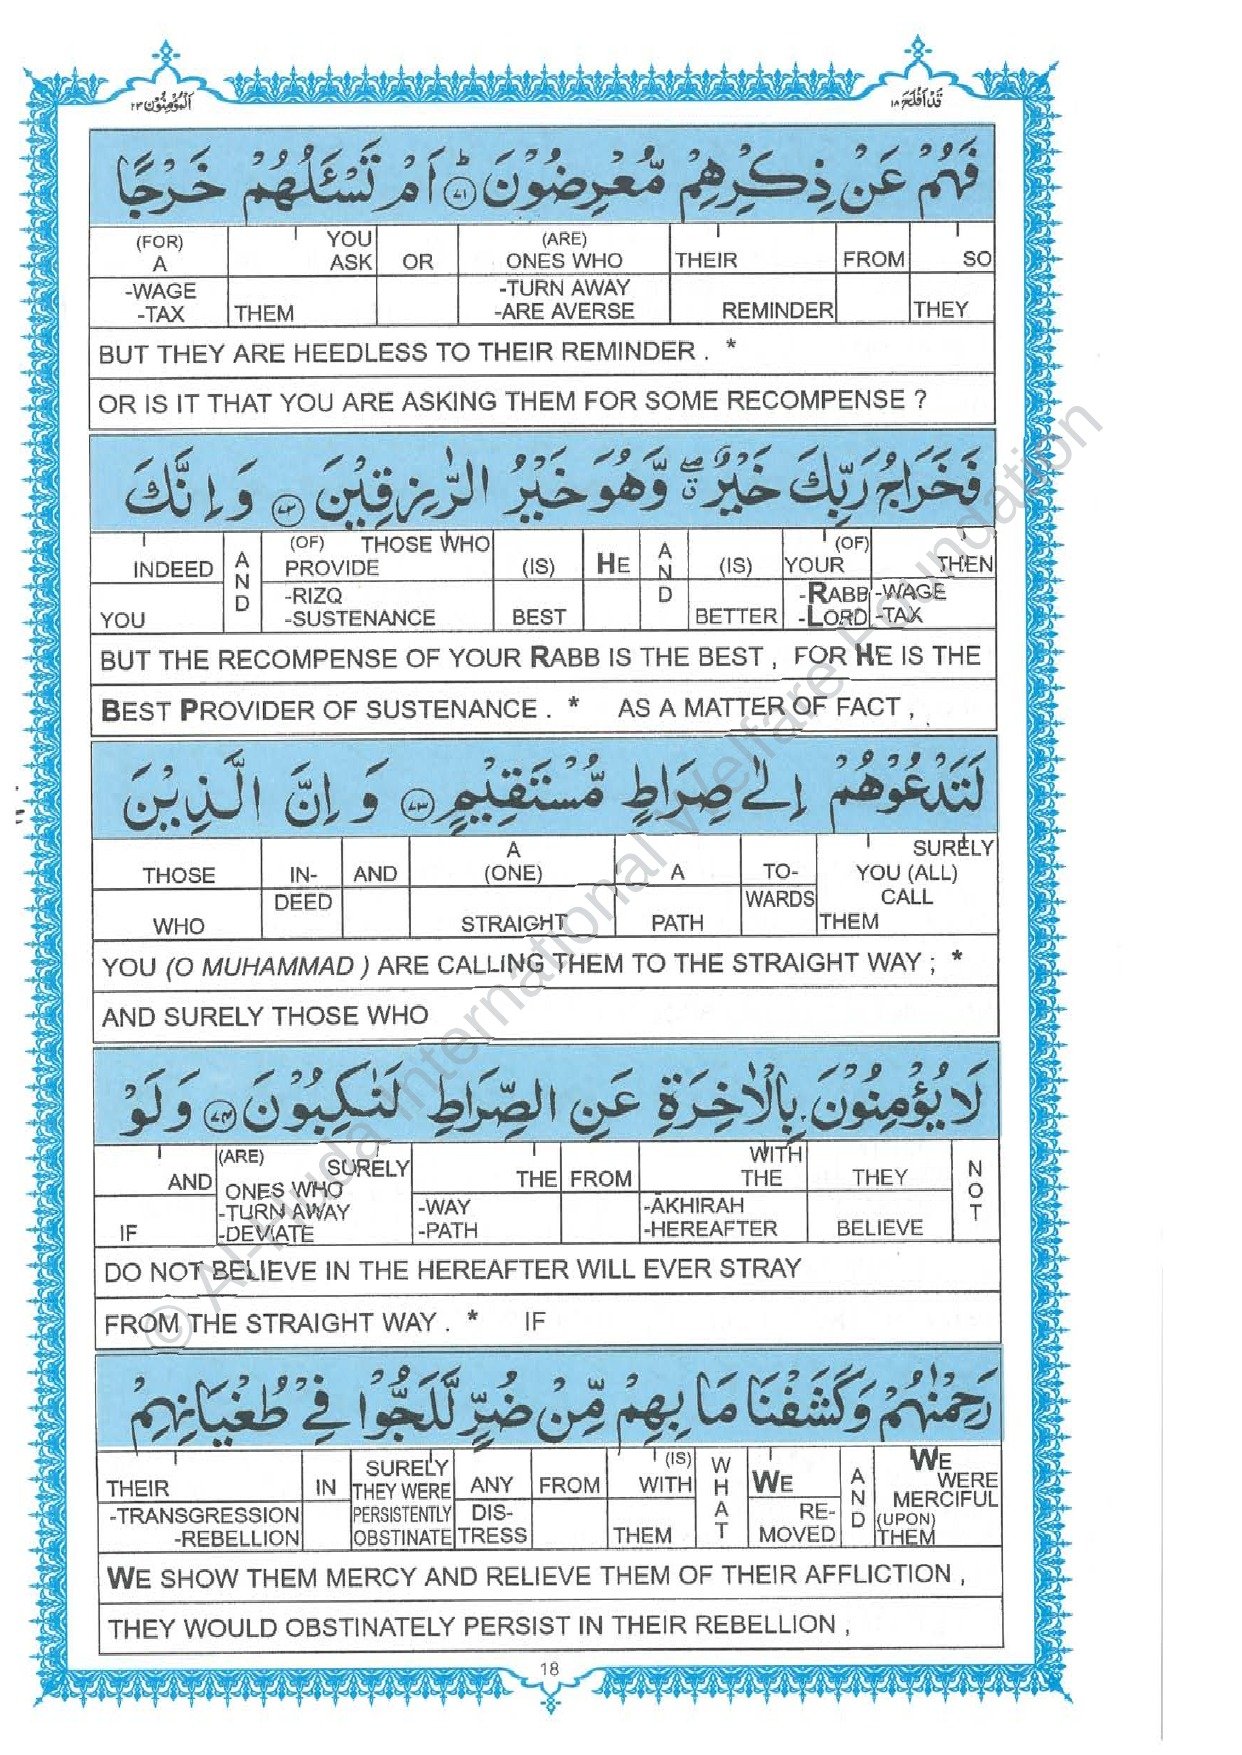 قَدْ اَفْلَحَ ١٨
اَلْمُؤْمِنُوْن ٢٣
فَهُمْ عَنْ ذِكْرِهِمْ مُّعْرِضُوْنَ ؕ‏ ﴿٧١﴾ اَمْ تَسْـَٔلُهُمْ خَرْجًا
SO THEY | FROM | THEIR REMINDER | (ARE) ONES WHO -TURN AWAY -ARE AVERSE | OR | YOU ASK THEM | (FOR) A -WAGE -TAX
BUT THEY ARE HEEDLESS TO THEIR REMINDER . *
OR IS IT THAT YOU ARE ASKING THEM FOR SOME RECOMPENSE ?
فَخَرَاجُ رَبِّكَ خَيْرٌ ۖ وَّهُوَ خَيْرُ الرّٰزِقِيْنَ ﴿٧٢﴾ وَاِنَّكَ
THEN -WAGE -TAX | (OF) YOUR -RABB -LORD | (IS) BETTER | AND | HE | (IS) BEST | (OF) THOSE WHO PROVIDE -RIZQ -SUSTENANCE | AND | INDEED YOU
BUT THE RECOMPENSE OF YOUR RABB IS THE BEST , FOR HE IS THE
BEST PROVIDER OF SUSTENANCE . * AS A MATTER OF FACT ,
لَتَدْعُوْهُمْ اِلٰى صِرَاطٍ مُّسْتَقِيْمٍ ﴿٧٣﴾ وَاِنَّ الَّذِيْنَ
SURELY YOU (ALL) CALL THEM | TO- WARDS | A PATH | A (ONE) STRAIGHT | AND | IN- DEED | THOSE WHO
YOU (O MUHAMMAD ) ARE CALLING THEM TO THE STRAIGHT WAY ; *
AND SURELY THOSE WHO
لَا يُؤْمِنُوْنَ بِالْاٰخِرَةِ عَنِ الصِّرَاطِ لَنٰكِبُوْنَ ﴿٧٤﴾ وَلَوْ
NOT | THEY BELIEVE | WITH THE -ĀKHIRAH -HEREAFTER | FROM | THE -WAY -PATH | SURELY (ARE) ONES WHO -TURN AWAY -DEVIATE | AND IF
DO NOT BELIEVE IN THE HEREAFTER WILL EVER STRAY
FROM THE STRAIGHT WAY . * IF
رَحِمْنٰهُمْ وَكَشَفْنَا مَا بِهِمْ مِّنْ ضُرٍّ لَّلَجُّوْا فِيْ طُغْيَانِهِمْ
WE WERE MERCIFUL (UPON) THEM | AND | WE RE- MOVED | WHAT | (IS) WITH THEM | FROM | ANY DIS- TRESS | SURELY THEY WERE PERSISTENTLY OBSTINATE | IN | THEIR -TRANSGRESSION -REBELLION
WE SHOW THEM MERCY AND RELIEVE THEM OF THEIR AFFLICTION ,
THEY WOULD OBSTINATELY PERSIST IN THEIR REBELLION ,
18
© Al-Huda International Welfare Foundation